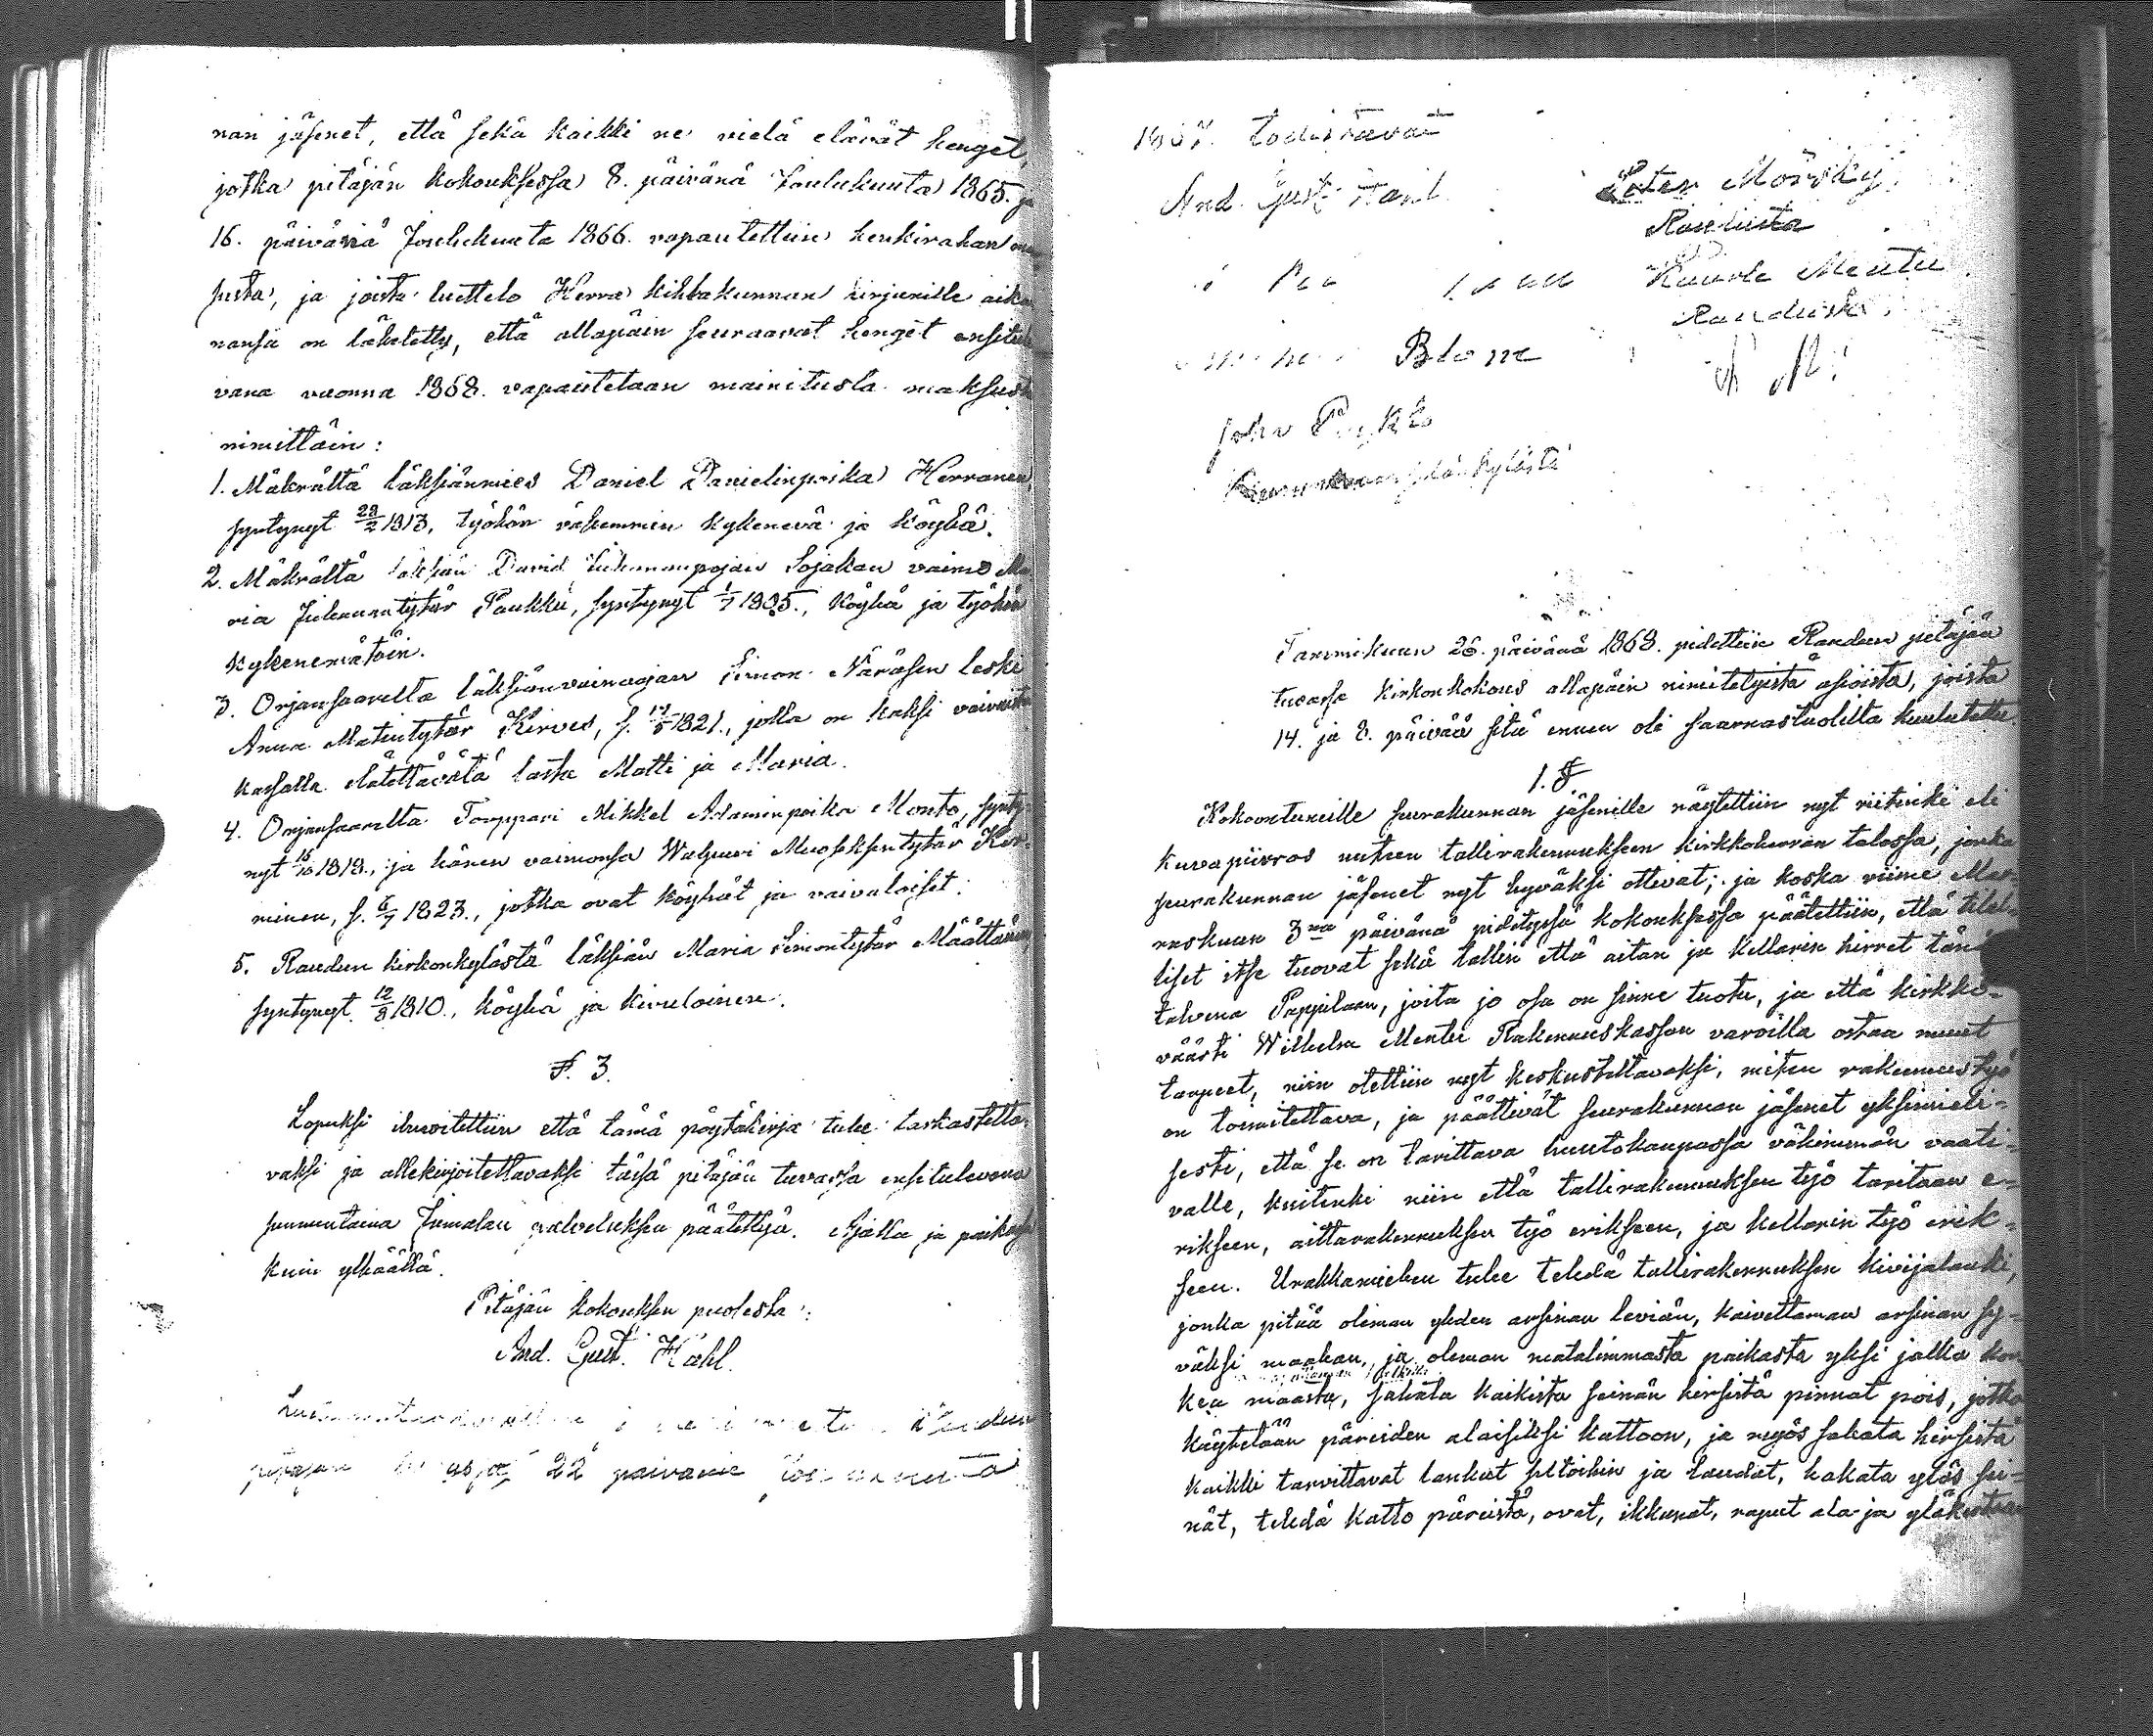 nan jäsenet, että sekä kaikki ne vielä elävät henget,
jotka pitäjän kokouksessa 8. päivänä Joulukuuta 1865. ja
16. päivänä Joulukuuta 1866. vapautettiin henkirahan
susta, ja joista luettelo Herra kihlakunnan kirjurille aika
nansa on lähetetty, että allapäin seuraavat henget ensitule
vana vuonna 1868. vapautetaan mainitusta maksusta
nimittäin:
1. Mäkrältä läksiänmies Daniel Danielinpoika Herranen,
syntynyt 23/2 1813, työhön vähemmin kykenevä ja köyhä.
2. Mäkrältä läksiän David Juhananpojan Sojakan vaimo Ma
ria Juhanantytär Paukku, syntynyt 1/7 1805., köyhä ja työhön
kykenemätöin.
3. Orjansaarelta läksiänvainaajan Simon Näräsen leski
Anna Matintytär Kirves, s. 1821., jolla on kaksi vaivaista
kassalla elätettävätä lasta Matti ja Maria.
4. Orjansaarelta Torppari Mikkel Adaminpoika Monto, synty-
nyt 15/10 1818., ja hänen vaimonsa Walpuri
minen, s. 6/7 1823., jotka ovat köyhät ja vaivaloiset.
5. Raudun kirkonkylästä läksiän Maria Simontytär Määttänen,
syntynyt 12/8 1810., köyhä ja kivuloinen.
§. 3.
Lopuksi ilmoitettiin että tämä pöytäkirja tulee tarkastetta-
vaksi ja allekirjoitettavaksi täisä pitäjän tuvassa ensitulevana
sunnuntaina Jumalan palveluksen päätettyä. Ajalla ja paikassa
kuin ylhäällä.
Pitäjän kokouksen puolesta:
And. Gust. Hahl.
Raudun
pitäjän 22 päivänä
1867. todistavat
And. Gust. Hahl.
Peter Mörsky
Raudusta
Paavle Mentu
Raudusta
Blom
P M
Joh.
kylästä
Tammikuun 26. päivänä 1868. pidettiin Raudun pitäjän
tuvassa kirkonkokous allapäin nimitetyistä asioista, joista
14. ja 8. päivää sitä ennen oli saarnastuolilta kuulutettu.
1. §
Kokoontuneille seurakunnan jäsenille näytettiin nyt riitinki eli
kuvapiirros uuteen tallirakennukseen kirkkoherran talossa, jonka
seurakunnan jäsenet nyt hyväksi ottivat; ja koska viime Mar-
raskuun 3na päivänä pidetyssä kokouksessa päätettiin, että tilal-
liset itse tuovat sekä tallin että aitan ja kellarin hirret tänä
talvena Pappilaan, joita jo osa on sinne tuotu, ja että kirkko-
väärti Wilhelm Mentu Rakennuskassan varoilla ostaa muut
tarpeet, niin otettiin nyt keskusteltavaksi, miten rakennustyö
on toimitettava, ja päättivät seurakunnan jäsenet yksimieli-
sesti, että se on tarittava huutokaupassa vähimmän vaati-
valle, kuitenki niin että tallirakennuksen työ taritaan e-
rikseen, aittarakennuksen työ erikseen, ja kellarin työ erik-
seen. Urakkamiehen tulee tehdä tallirakennuksen kivijalanki,
jonka pitää oleman yhden arsinan leviän, kaivettaman arsinan sy-
väksi maahan, ja oleman matalimmasta paikasta yksi jalka kor
kea maasta, sahata kaikista seinän hirsistä pinnat pois, jotka
käytetään päreiden alaisiksi kattoon, ja myös sahata hirsistä
kaikki tarvittavat lankut siltoihin ja laudat, hakata ylös sei-
nät, tehdä katto päreistä, ovet, ikkunat, raput ala- ja yläkertaan